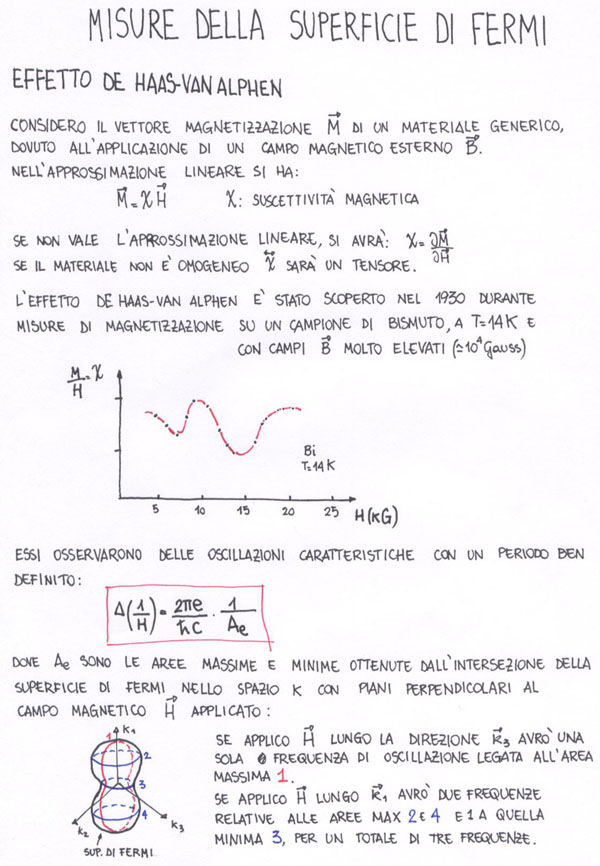 MISURE DELLA SUPERFICIE DI FERMI
EFFETTO DE HAAS-VAN ALPHEN
CONSIDERO IL VETTORE MAGNETIZZAZIONE M⃗ DI UN MATERIALE GENERICO,
DOVUTO ALL'APPLICAZIONE DI UN CAMPO MAGNETICO ESTERNO B⃗.
NELL'APPROSSIMAZIONE LINEARE SI HA:
M⃗ = χH⃗ χ: SUSCETTIVITÀ MAGNETICA
SE NON VALE L'APPROSSIMAZIONE LINEARE, SI AVRÀ: χ = ∂M⃗/∂H⃗
SE IL MATERIALE NON È OMOGENEO χ⃡ SARÀ UN TENSORE.
L'EFFETTO DE HAAS-VAN ALPHEN È STATO SCOPERTO NEL 1930 DURANTE
MISURE DI MAGNETIZZAZIONE SU UN CAMPIONE DI BISMUTO, A T=14K E
CON CAMPI B⃗ MOLTO ELEVATI (≃10⁴ Gauss)
M/H = χ
Bi
T=14K
5 10 15 20 25 H(kG)
ESSI OSSERVARONO DELLE OSCILLAZIONI CARATTERISTICHE CON UN PERIODO BEN
DEFINITO:
Δ(1/H) = 2πe/ħc · 1/Ae
DOVE Ae SONO LE AREE MASSIME E MINIME OTTENUTE DALL'INTERSEZIONE DELLA
SUPERFICIE DI FERMI NELLO SPAZIO K CON PIANI PERPENDICOLARI AL
CAMPO MAGNETICO H⃗ APPLICATO:
1 K₁
2
3
4
K₂ K₃
SUP. DI FERMI
SE APPLICO H⃗ LUNGO LA DIREZIONE K⃗₃ AVRÒ UNA
SOLA FREQUENZA DI OSCILLAZIONE LEGATA ALL'AREA
MASSIMA 1.
SE APPLICO H⃗ LUNGO K⃗₁ AVRÒ DUE FREQUENZE
RELATIVE ALLE AREE MAX 2 E 4 E 1 A QUELLA
MINIMA 3, PER UN TOTALE DI TRE FREQUENZE.